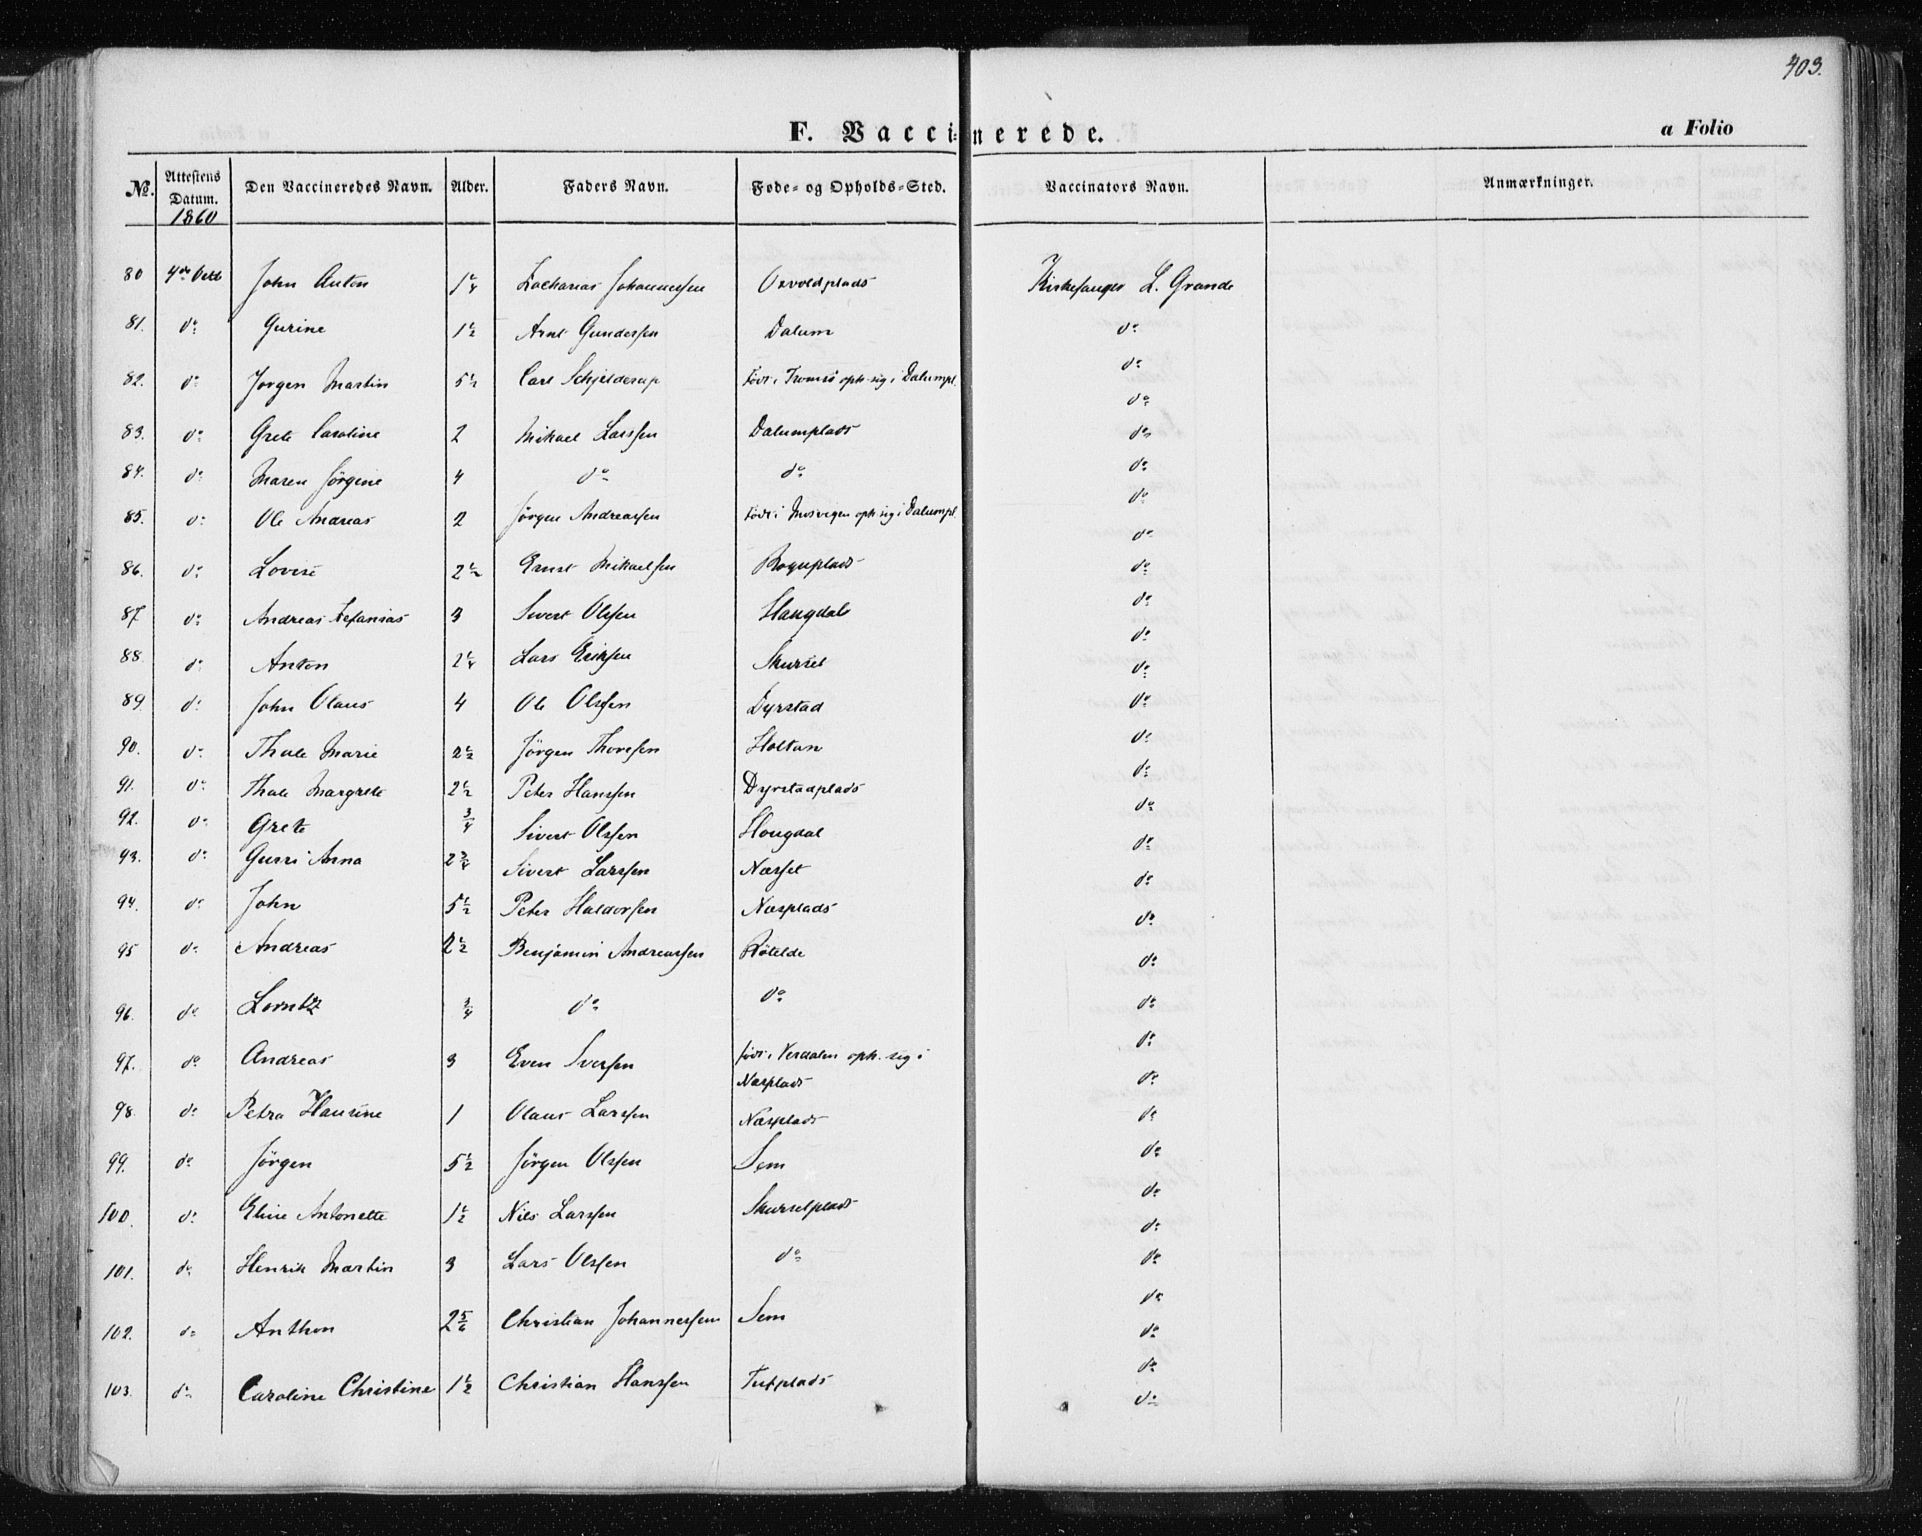 403.
F. Vaccinerede. a Folio
No. Attestens Datum. Den Vaccineredes Navn. Alder. Faders Navn. Føde- og Opholds-Sted. Vaccinators Navn. Anmærkninger.
1860
80 4de Octb John Anton 1 1/4 Zacharias Johannessen Osvoldplads Kirkesanger L. Grande
81. do Gurine 1 1/2 Arnt Gundersen Dalum do
82. do Jørgen Martin 5 1/2 Carl Schjelderup født i Tromsö oph. sig i Dalumpl. do
83. do Grete Caroline 2 Mikael Larssen Dalumplads do
84. do Maren Jørgine 4 do do do
85. do Ole Andreas 2 Jørgen Andreassen født i Mosvigen oph. sig i Dalumpl. do
86. do Lovise 2 1/2 Ernst Mikaelsen do
87 do Andreas Zefanias 3 Sivert Olssen Haugdal do
88 do Anton 2 1/4 Lars Eriksen Skursel do
89. do John Olaus 4 Ole Olssen Dyrstad do
90. do Thale Marie 2 1/2 Jørgen Thoresen Holtan do
91. do Thale Margrete 2 1/2 Peter Hanssen Dyrstadplads do
92. do Grete 3/4 Sivert Olssen Hougdal do
93. do Gurri Anna 2 3/4 Sivert Larssen Næsset do
94. do John 5 1/2 Peter Haldorsen Næsplads do
95 do Andreas 2 1/2 Benjamin Andreassen do
96. do Lorntz 3/4 do do do
97. do Andreas 3 Even Iversen født i Verdalen oph. sig i do
Næsplads do
98. do Petra Hansine 1 Olaus Larssen Næsplads do
99. do Jørgen 5 1/2 Jørgen Olssen Sem do
100. do Eline Antonette 1 1/2 Nils Larssen Skurselplads do
101. do Henrik Martin 3 Lars Olssen do do
102. do Anthon 2 5/6 Christian Johannessen Sem do
103. do Caroline Christine 1 1/2 Christian Hanssen Tufplads do